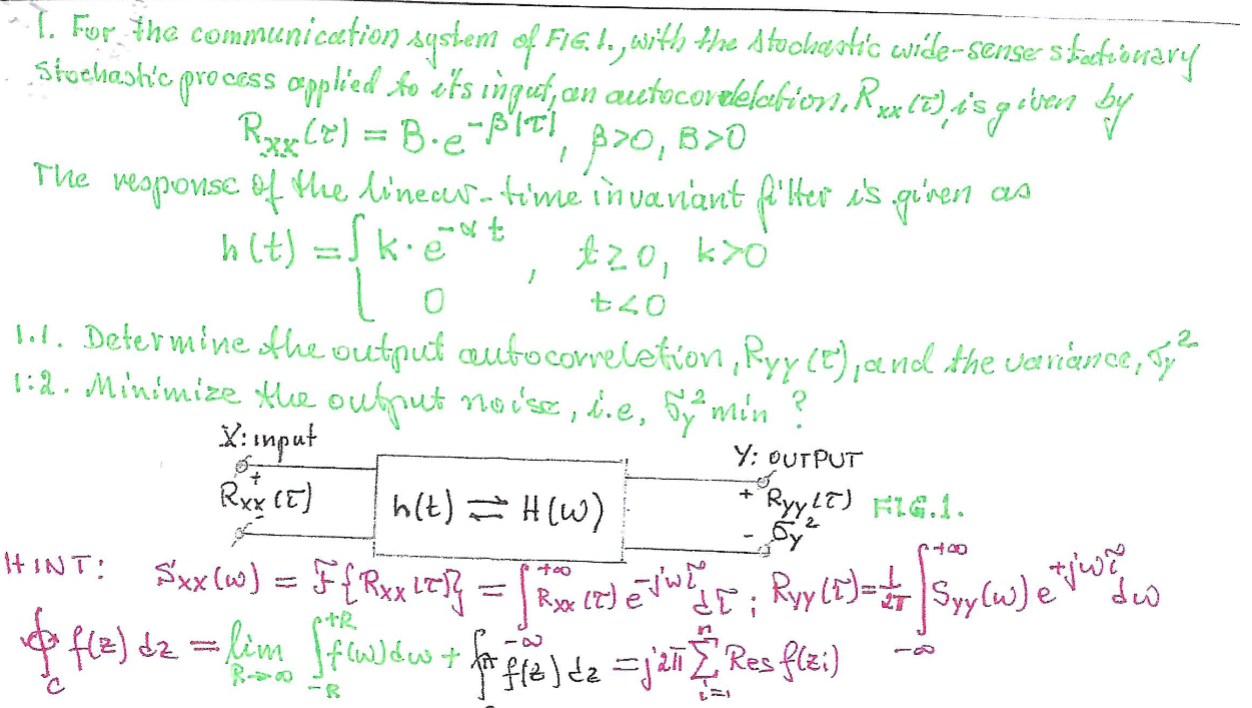 1. For the communication system of FIG. 1., with the stochastic wide-sense stationary
stochastic process applied to it's input, an autocorrelation, Rxx(τ), is given by
Rxx(τ) = B·e^-β|τ|, β>0, B>0
The response of the linear-time invariant filter is given as
h(t) = { k·e^-αt , t≥0, k>0
0 t<0
1.1. Determine the output autocorreletion, Ryy(τ), and the variance, σy²
1:2. Minimize the output noise, i.e, σy² min ?
X: input
Y: OUTPUT
+ +
Rxx(τ) h(t) ⇌ H(ω) Ryy(τ) FIG.1.
- - σy²
HINT: Sxx(ω) = F{Rxx(τ)} = ∫_-∞^+∞ Rxx(τ) e^-jωτ dτ ; Ryy(τ) = 1/2π ∫_-∞^+∞ Syy(ω) e^+jωτ dω
∮_C f(z) dz = lim_R→∞ ∫_-R^+R f(ω)dω + ∫^π f(z) dz = j2π Σ_i=1^n Res f(zi)